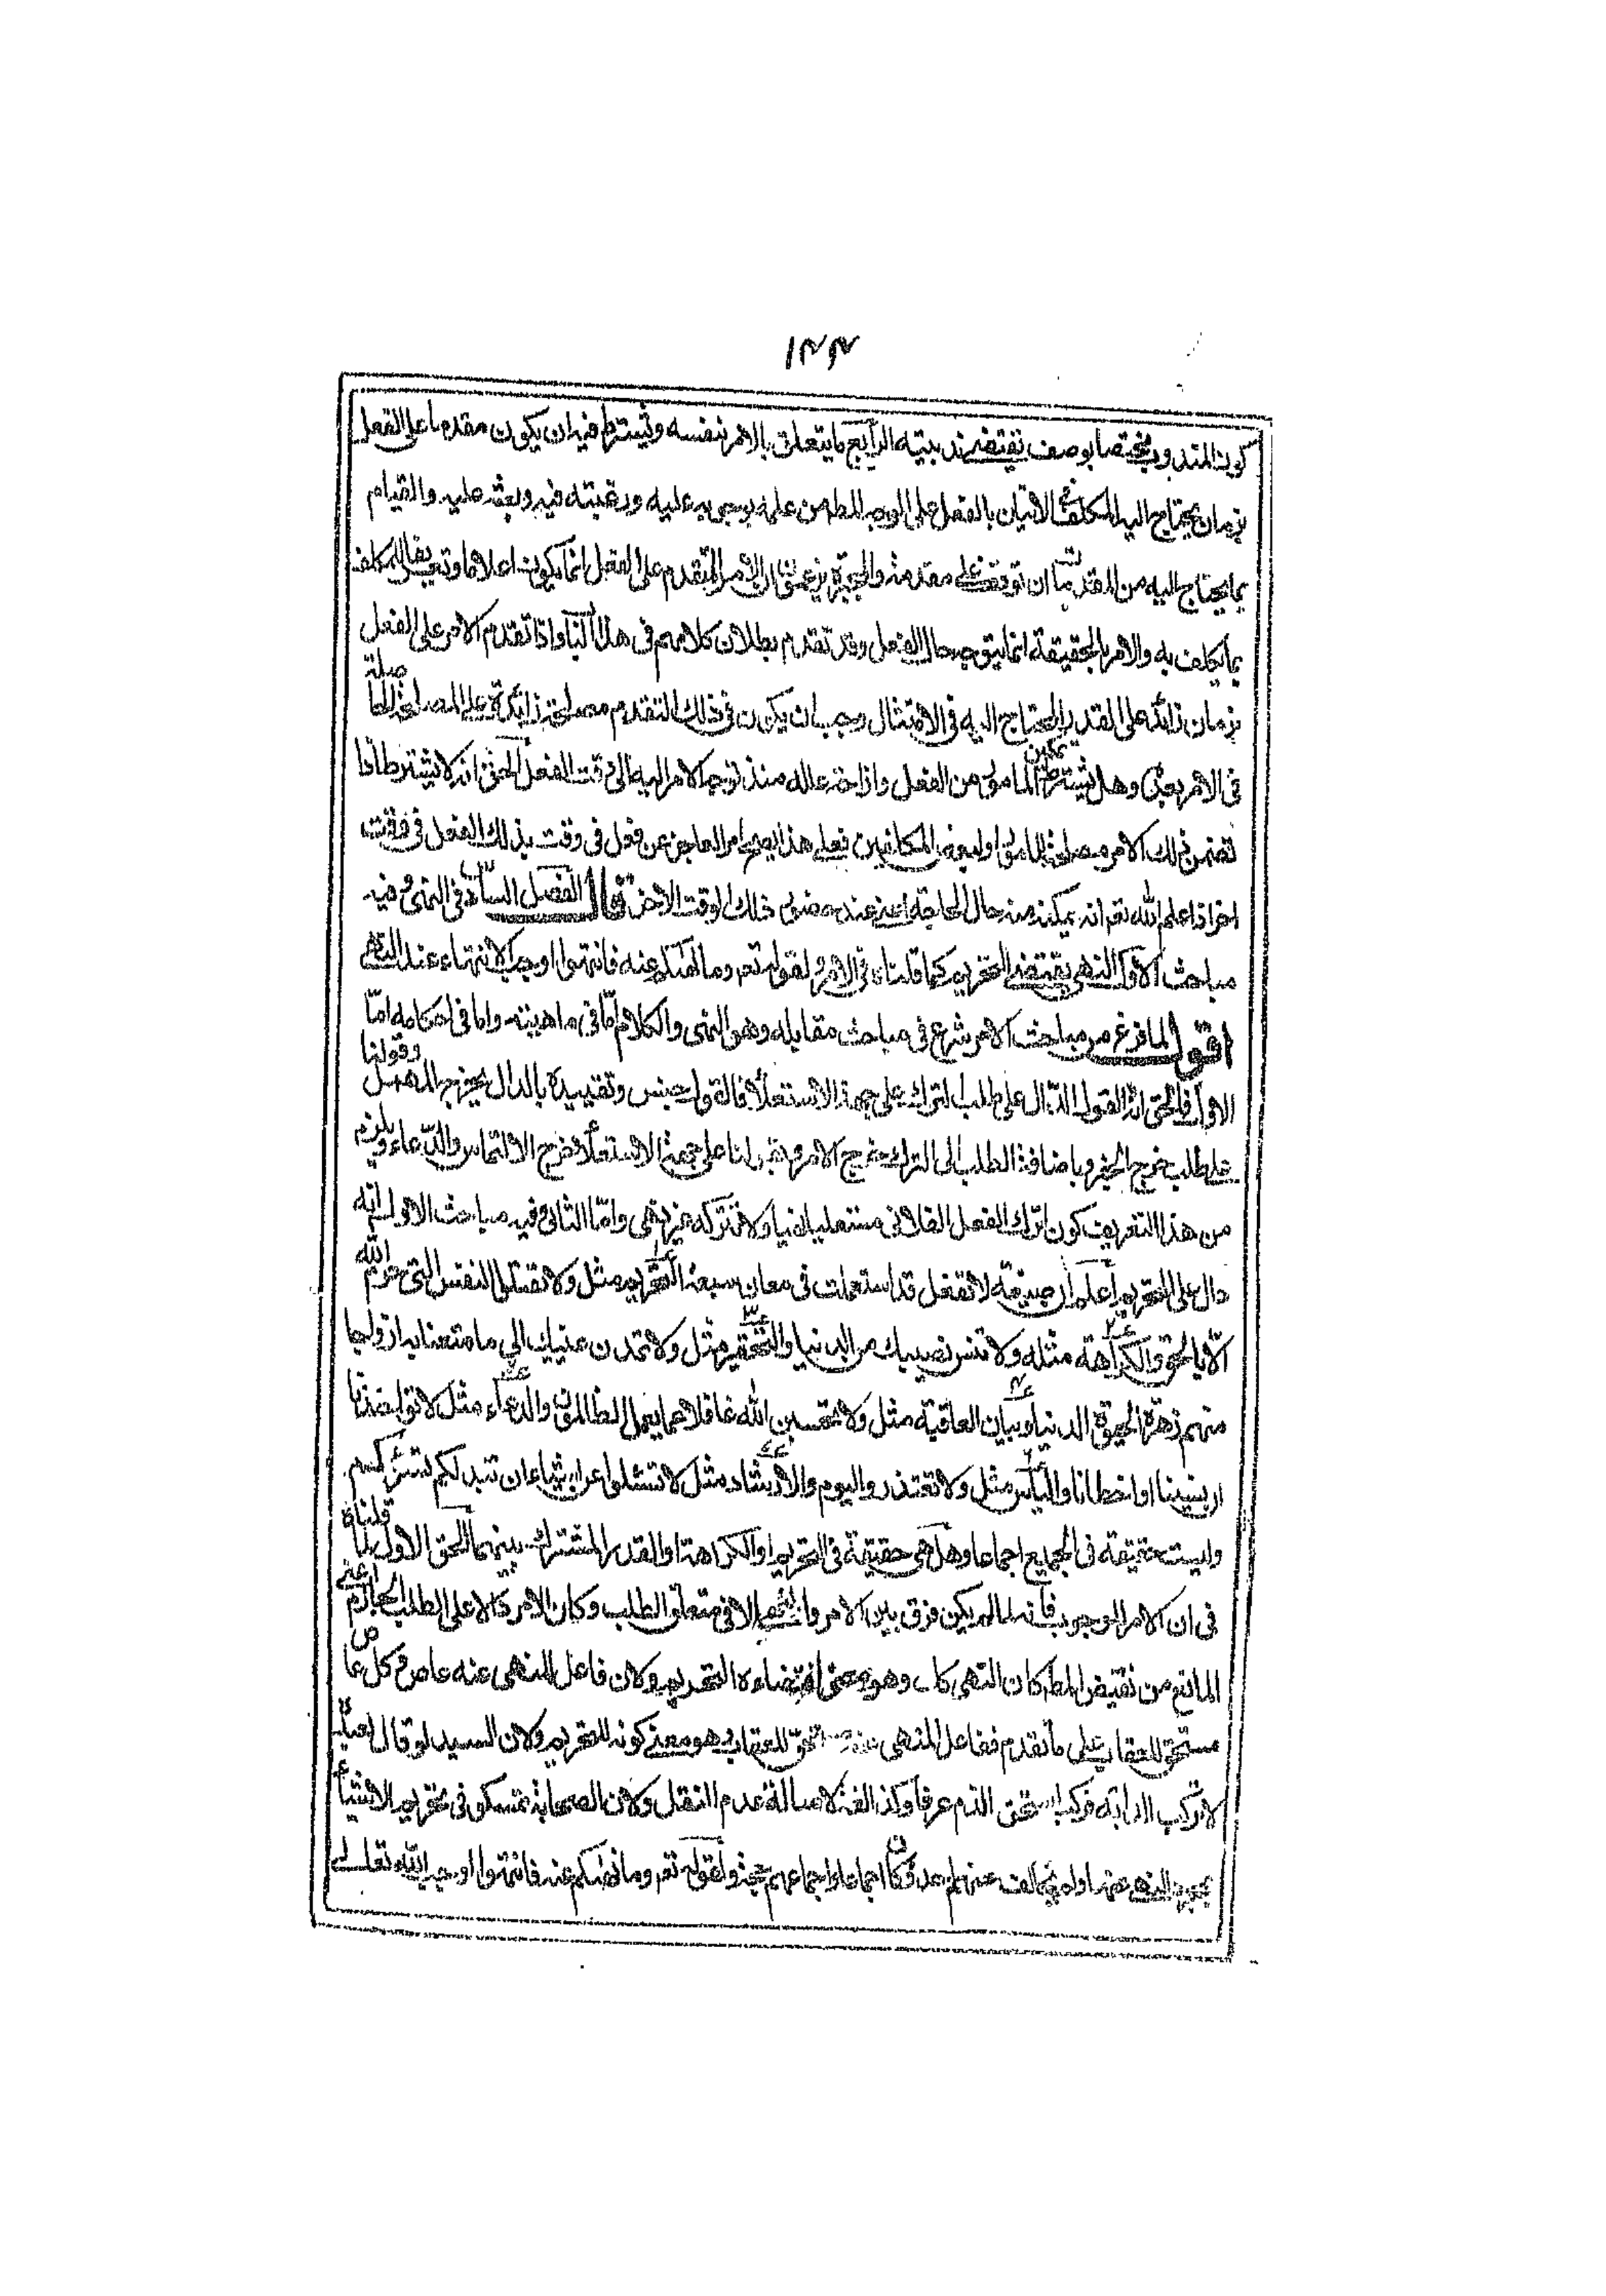 ١٣٣
كون المندوب مختصا بوصف تقتضى ندبيته الرابع ما يتعلق بالامر نفسه ويشترط فيه ان يكون مقدما على الفعل
بزمان يحتاج اليه المكلف فى الاتيان بالفعل على الوجه المط من علمه بوجوبه عليه ورغبته فيه وبعثه عليه والقيام
بما يحتاج اليه من المقدمات ان توقف على مقدمة والمجبرة يزعمون ان الامر المتقدم على الفعل انما يكون اعلاما وتعريفا للمكلف
بما يكلف به والامر بالحقيقة انما يتوجه حال الفعل وقد تقدم بطلان كلامهم فى هذا الباب واذا تقدم الامر على الفعل
بزمان زائد على القدر المحتاج اليه فى الامتثال وجب ان يكون فى ذلك التقدم مصلحة زائدة على المصلحة الحاصلة
فى الامر بعينه وهل يشترط تمكين المامور من الفعل وازاحة علله منذ توجه الامر اليه الى وقت الفعل الحق انه لا يشترط اذا
تضمن ذلك الامر مصلحة للمامور او لبعض المكلفين فعلى هذا يصح امر العاجز عن فعل فى وقت بذلك الفعل فى وقت
اخر اذا علم الله تعر انه يمكنه منه حال الحاجة اعنى عند حضور ذلك الوقت الاخر قال الفصل السادس فى النهى وفيه
مباحث الاول النهى يقتضى التحريم كما قلناه فى الامر ولقوله تعر وما نهيكم عنه فانتهوا اوجب الانتهاء عند النهى
اقول لما فرغ من مباحث الامر شرع فى مباحث مقابله وهو النهى والكلام اما فى ماهيته واما فى احكامه اما
الاول فالحق انه القول الدال على طلب الترك على جهة الاستعلاء فالقول جنس وتقييده بالدال يخرج المهمل وقولنا
على طلب خرج الخبر وباضافة الطلب الى الترك خرج الامر وبقولنا على جهة الاستعلاء خرج الالتماس والدعاء ويلزم
من هذا التعريف كون اترك الفعل الفلانى مستعليا نهيا ولا تتركه غير نهى واما الثانى ففيه مباحث الاول انه
دال على التحريم اعلم ان صيغة لا تفعل قد استعملت فى معان سبعة التحريم مثل ولا تقتلوا النفس التى حرم الله
الا بالحق والكراهة مثله ولا تنس نصيبك من الدنيا والتحقير مثل ولا تمدن عينيك الى ما متعنا به ازواجا
منهم زهرة الحيوة الدنيا وبيان العاقبة مثل ولا تحسبن الله غافلا عما يعمل الظالمون والدعاء مثل لا تؤاخذنا
ان نسينا او اخطانا والياس مثل ولا تعتذروا اليوم والارشاد مثل لا تسئلوا عن اشياء ان تبد لكم تسؤكم
وليست حقيقة فى الجميع اجماعا وهل هى حقيقة فى التحريم او الكراهة او القدر المشترك بينهما الحق الاول لما قلناه
فى ان الامر للوجوب فانه لما لم يكن فرق بين الامر والنهى الا فى متعلق الطلب وكان الامر دالا على الطلب الجازم اعنى
المانع من نقيض المط كان النهى كك وهو معنى اقتضاءه التحريم ولان فاعل المنهى عنه عاص وكل عاص
مستحق للعقاب على ما تقدم ففاعل المنهى عنه مستحق للعقاب وهو معنى كونه للتحريم ولان السيد لو قال لعبده
لا تركب الدابة فركب استحق الذم عرفا وكذا لغة لاصالة عدم النقل ولان الصحابة تمسكوا فى تحريم الاشياء
بمجرد النهى عنها ولم يخالف منهم احد فكان اجماعا واجماعهم حجة ولقوله تعر وما نهيكم عنه فانتهوا اوجب الله تعالى